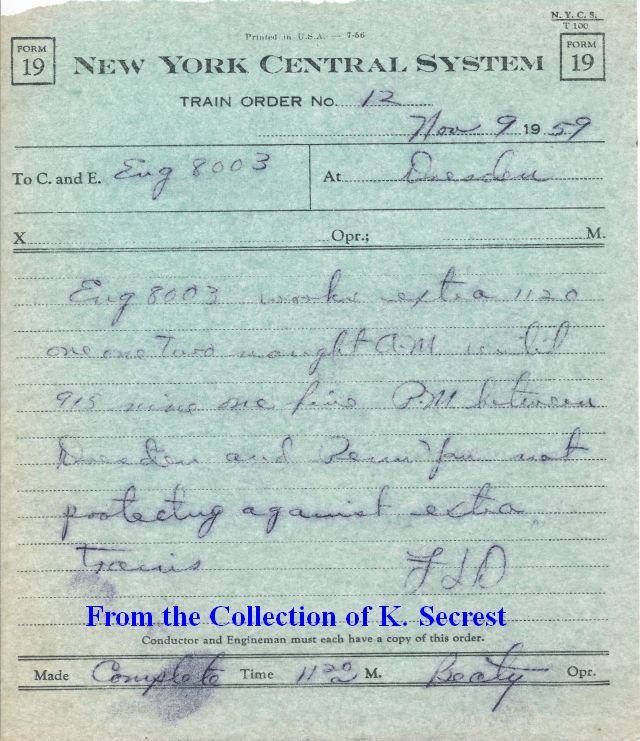 N. Y. C. S.
T 100
Printed in U.S.A. — 7-56
FORM
19
NEW YORK CENTRAL SYSTEM
FORM
19
TRAIN ORDER No. 12
Nov 9 1959
To C. and E. Eng 8003 At Dresden
X Opr.; M.
Eng 8003 works extra 1120
one one two naught A.M until
915 nine one five P.M between
Dresden and Penn Yan not
protecting against extra
Trains
From the Collection of K. Secrest
Conductor and Engineman must each have a copy of this order.
Made Complete Time 1120 M. Beaty Opr.